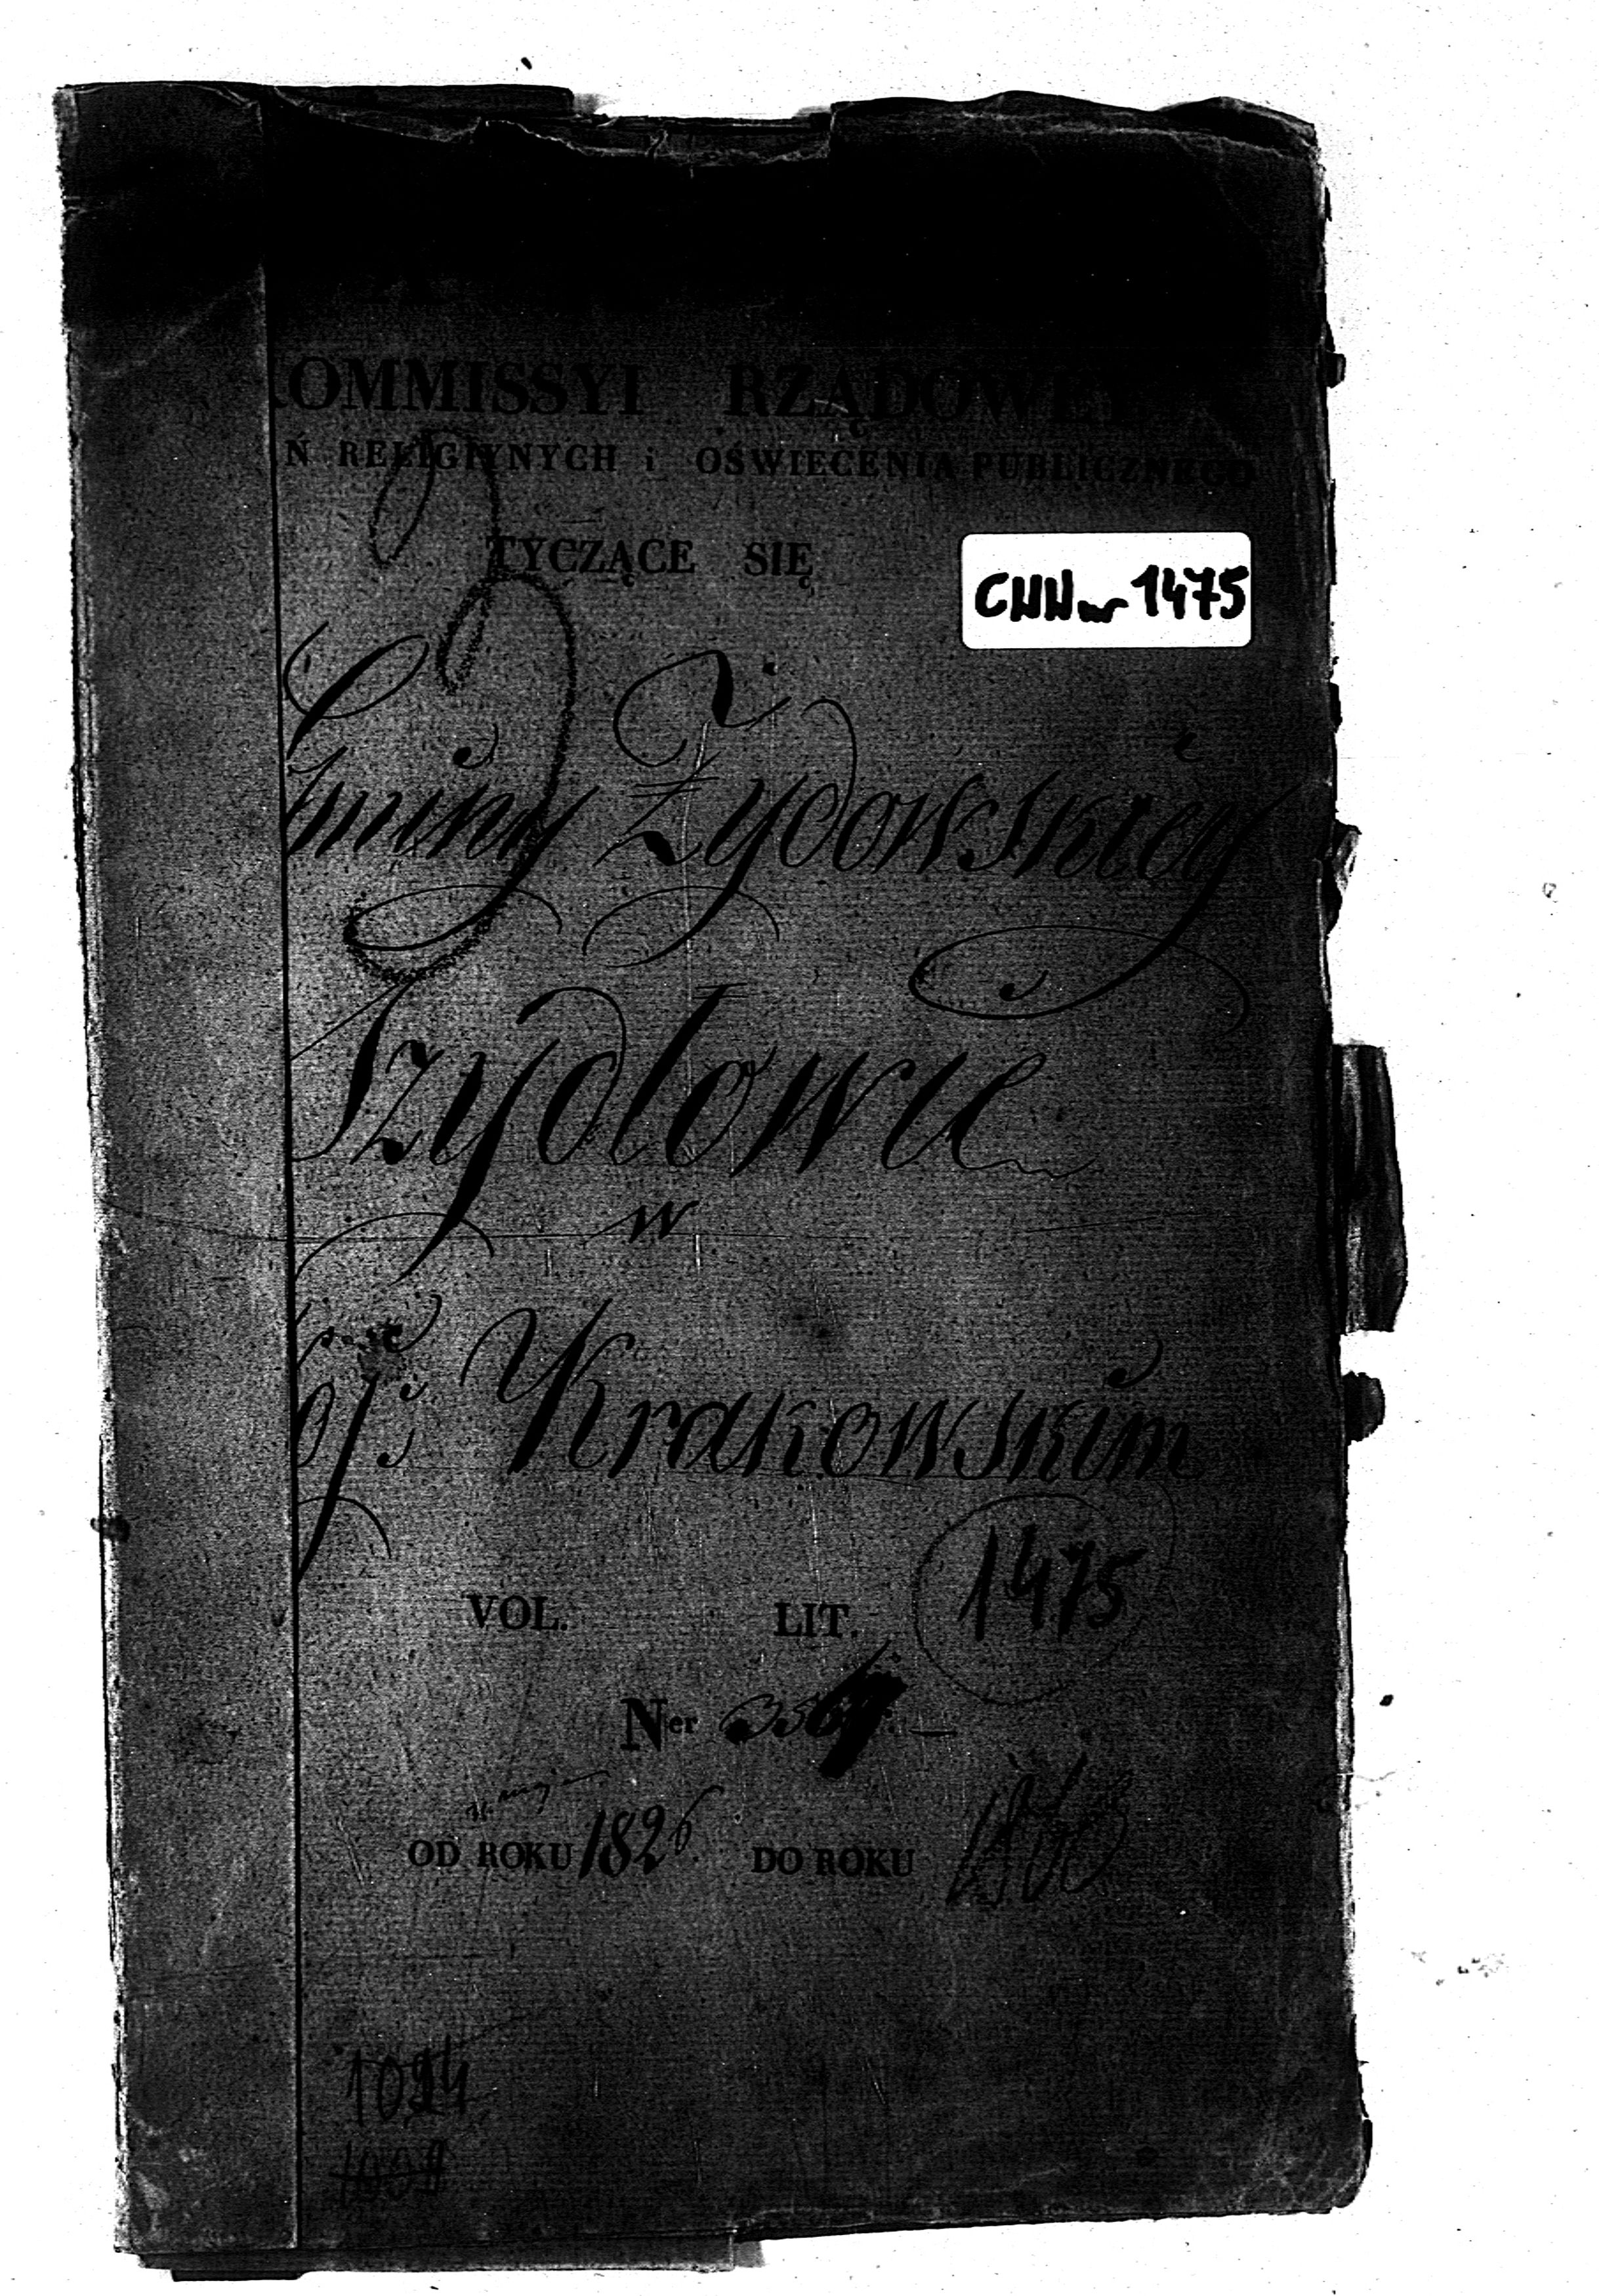 OMMISSYI RZĄDOWEY
Ń RELIGIYNYCH i OŚWIECENIA PUBLICZNEGO
TYCZĄCE SIĘ
CWWnr 1475
Gminy Żydowskiey
Szydłowie
w
Krakowskim
1475
VOL. LIT.
Ner
OD ROKU 1826. DO ROKU
1024